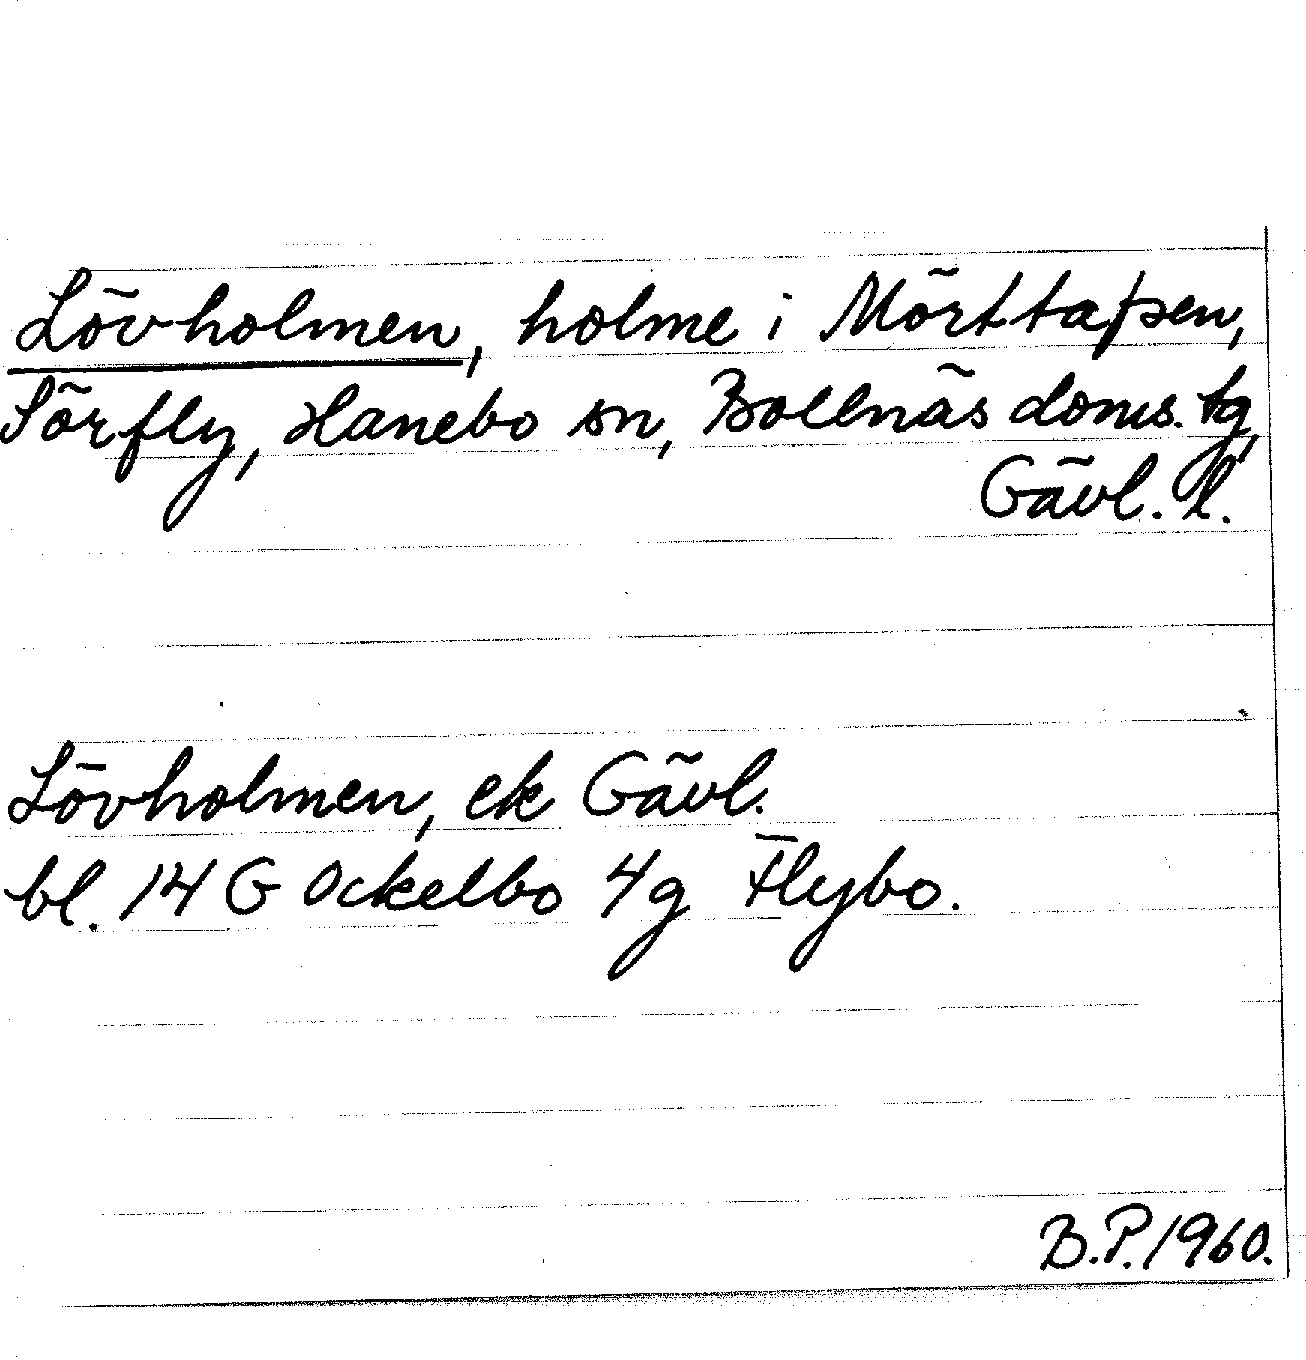 Lövholmen, holme i Mörttapsen,
Sörfly, Hanebo sn, Bollnäs doms. tg,
Gävl. l.
Lövholmen, ek Gävl.
bl. 14 G Ockelbo 4g Flybo.
B.P. 1960.